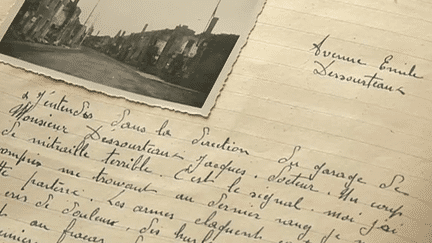 Avenue Emile
Dessourteaux
« J'entends dans la direction du garage de
Monsieur Dessourteaux Jacques, docteur. Un coup
de mitraille terrible. C'est le signal, moi j'ai
compris me trouvant au dernier rang je
partère. Les armes claquent
cris de douleur, des
au fracas